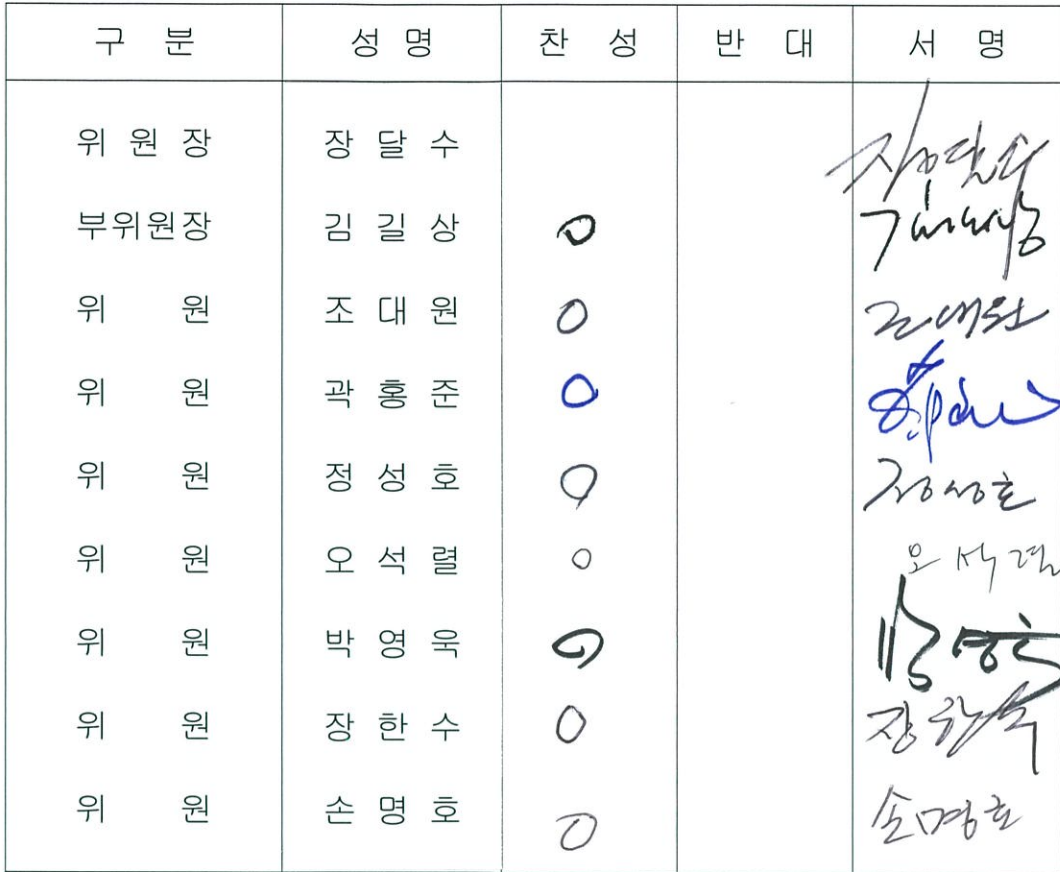 구 분 성 명 찬 성 반 대 서 명
위 원 장 장 달 수 장달수
부위원장 김 길 상 O 김길상
위 원 조 대 원 O 조대원
위 원 곽 홍 준 O
위 원 정 성 호 O 정성호
위 원 오 석 렬 O 오석렬
위 원 박 영 욱 O 박영욱
위 원 장 한 수 O 장한수
위 원 손 명 호 O 손명호